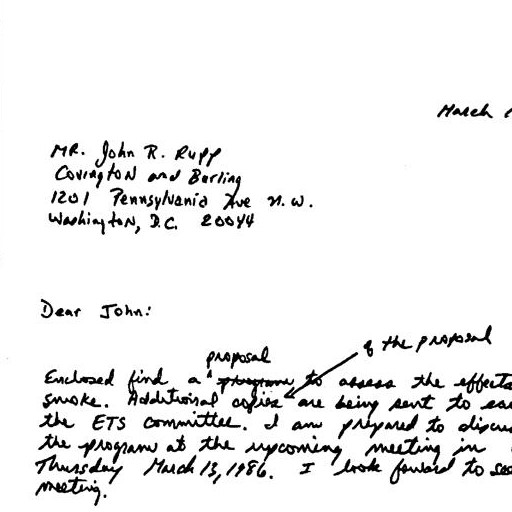 March
MR. John R. Rupp
Covington and Burling
1201 Pennsylvania Ave N.W.
Washington, D.C. 20044
Dear John:
proposal
of the proposal
Enclosed find a program to assess the effects
smoke. Additional copies are being sent to
the ETS committee. I am prepared to
the program at the upcoming meeting in
Thursday March 13, 1986. I look forward to
meeting.